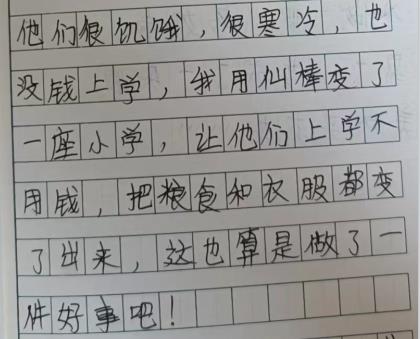 他们很饥饿，很寒冷，也
没钱上学，我用仙棒变了
一座小学，让他们上学不
用钱，把粮食和衣服都变
了出来，这也算是做了一
件好事吧！